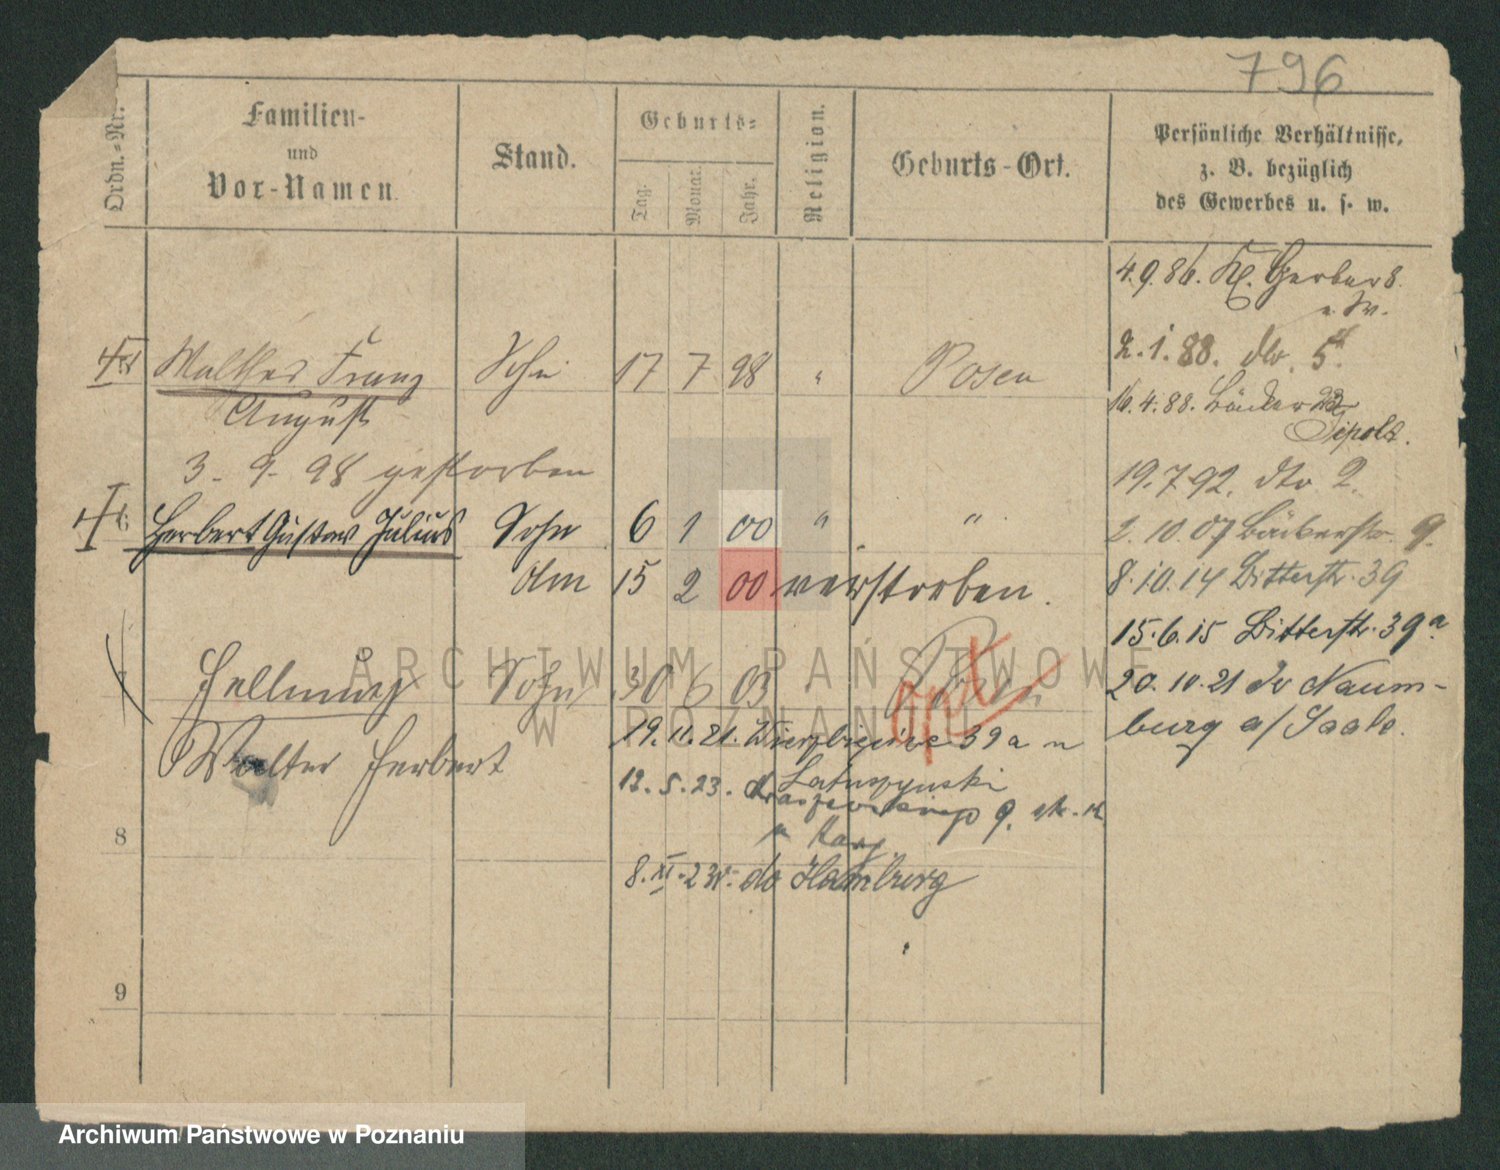 796
Ordn.-Nr.
Familien-
und
Vor-Namen.
Stand.
Geburts-
Tag.
Monat.
Jahr.
Religion.
Geburts-Ort.
Persönliche Verhältnisse,
z. B. bezüglich
des Gewerbes u. s. w.
4.9.86. Kl. Gerber 8.
2.1.88. dto. 5
Walther Franz Sohn 17 7 98 " Posen
August
16.4.88. Bäcker
3. 9. 98 gestorben
19.7.92. dto 2.
6 Herbert Gustav Julius Sohn 6 1 00 " "
2.10.07 Bäckerstr. 9.
am 15 2 00 verstorben.
8.10.14 Bitterstr. 39
15.6.15 Bitterstr. 39a
7 Hellmuth Sohn 30 6 03 Posen
opt
20.10.21 dv Naum-
burg a/Saale.
19.11.21. Wierzbięcice 39a
Walter Herbert
12.5.23.
8
8.XI.23. do Hamburg
9
ARCHIWUM PAŃSTWOWE
W POZNANIU
Archiwum Państwowe w Poznaniu